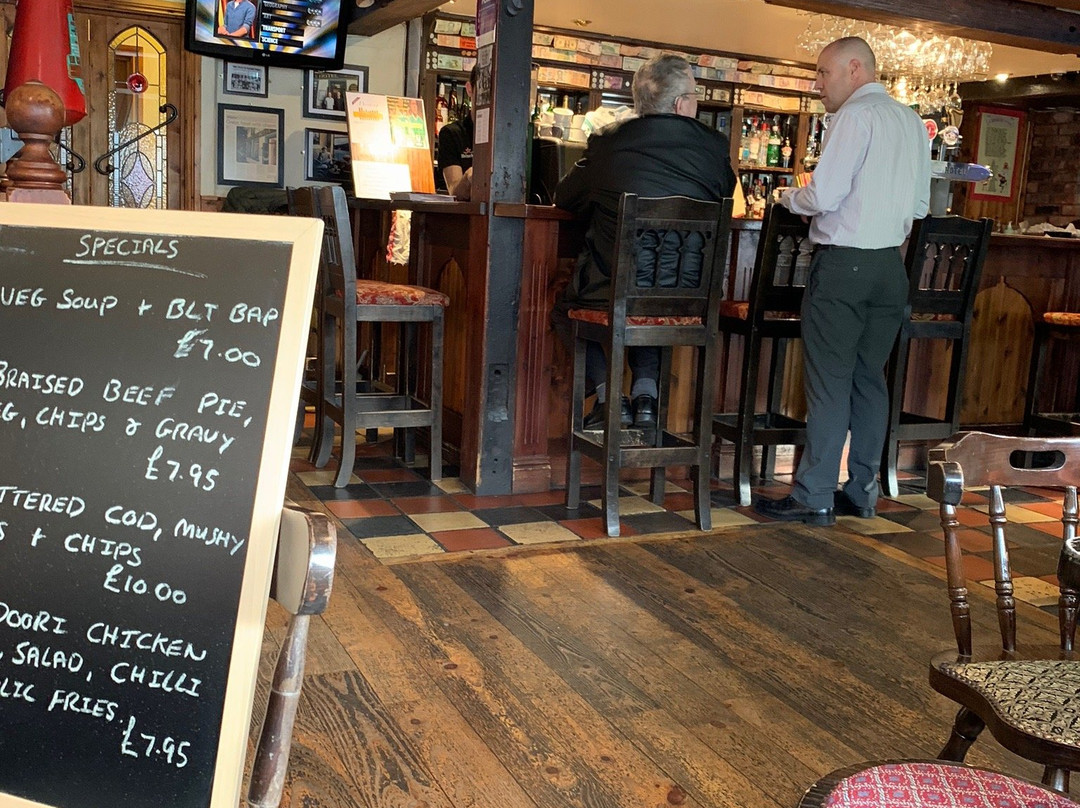 TRANSPORT
SCIENCE
SPECIALS
VEG SOUP + BLT BAP
£7.00
BRAISED BEEF PIE,
EG, CHIPS & GRAVY
£7.95
TTERED COD, MUSHY
S + CHIPS
£10.00
DOORI CHICKEN
, SALAD, CHILLI
LIC FRIES.
£7.95